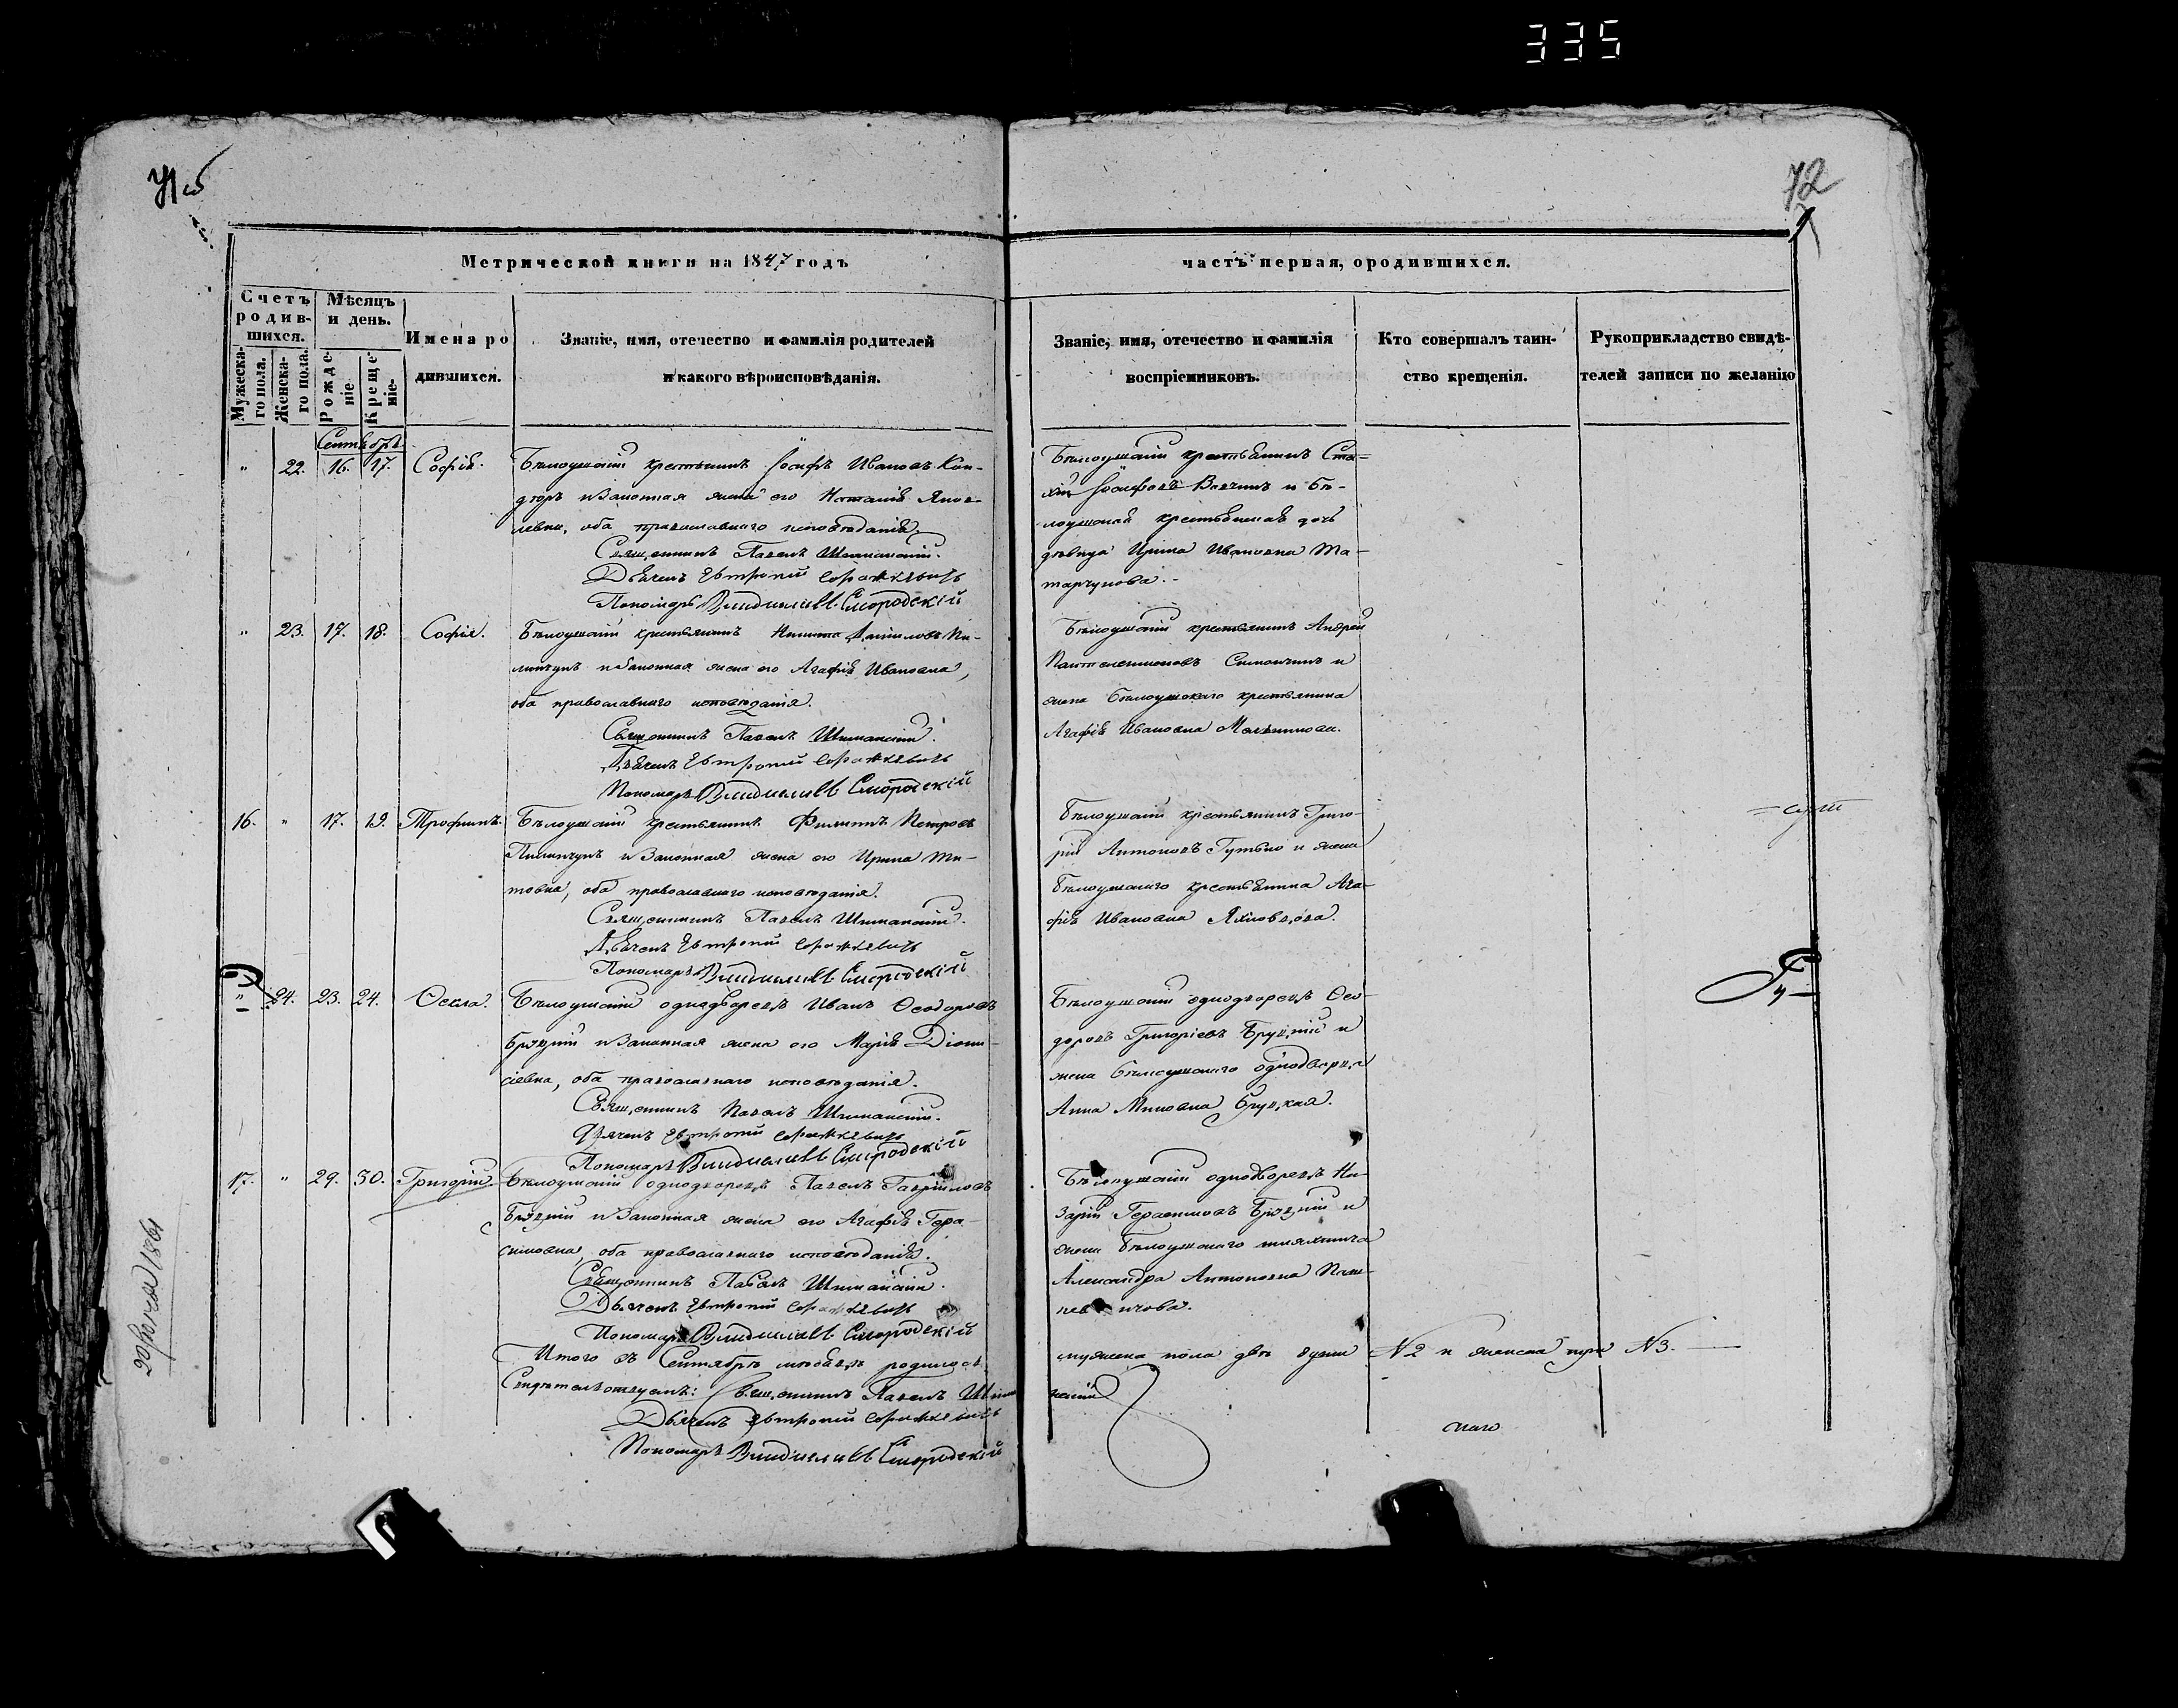 335
71 об
72
Метрической книги на 1847 годъ
часть первая, о родившихся.
Счетъ родив-
шихся.
Мужеска-
го пола.
Женска-
го пола.
Мѣсяцъ
и день.
Рожде-
ніе
Креще-
ніе-
Имена ро
дившихся.
Званіе, имя, отечество и фамилія родителей
и какого вѣроисповѣданія.
Званіе, имя, отечество и фамилія
воспріемниковъ.
Кто совершалъ таин-
ство крещенія.
Рукоприкладство свидѣ-
телей записи по желанію
Сентябрь
" 22. 16. 17. Софія. Бѣлоушскій крестьянинъ Іосифъ Ивановъ Кон-
дюръ и законная жена его Наталія Яков-
левна, оба православнаго исповѣданія
Священникъ Павелъ Шиманскій.
Дьячекъ Евтропій
Пономарь Смородскій
Бѣлоушскій крестьянинъ Ста-
хій Іосифовъ и Бѣ-
лоушской крестьянки дочь
дѣвица Ирина Ивановна Та-
тарчукова.
" 23. 17. 18. Софія. Бѣлоушскій крестьянинъ Никита Даниловъ Пи-
липчукъ и законная жена его Агафія Ивановна,
оба православнаго исповѣданія.
Священникъ Павелъ Шиманскій.
Дьячекъ Евтропій
Пономарь Смородскій
Бѣлоушскій крестьянинъ Андрей
Пантелеимоновъ Симончикъ и
жена Бѣлоушскаго крестьянина
Агафія Ивановна
16. " 17. 19. Трофимъ. Бѣлоушскій крестьянинъ Филиппъ Петровъ
Пилипчукъ и законная жена его Ирина Ти-
товна, оба православнаго исповѣданія.
Священникъ Павелъ Шиманскій.
Дьячекъ Евтропій
Пономарь Смородскій
Бѣлоушскій крестьянинъ Григо-
рій Антоновъ Гутько и жена
Бѣлоушскаго крестьянина Ага-
фія Ивановна
" 24. 23. 24. Ѳекла. Бѣлоушскій однодворецъ Иванъ Ѳеодоровъ
Бруцкій и законная жена его Марія Діони-
сіевна, оба православнаго исповѣданія.
Священникъ Павелъ Шиманскій.
Дьячекъ Евтропій
Пономарь Смородскій
Бѣлоушскій однодворецъ Ѳео-
доръ Григоріевъ Бруцкій и
жена Бѣлоушскаго однодворца
Анна Миновна Бруцкая.
17. " 29. 30. Григорій. Бѣлоушскій однодворецъ Павелъ Гавріиловъ
Бруцкій и законная жена его Агафія Гера-
симовна, оба православнаго исповѣданія.
Священникъ Павелъ Шиманскій.
Дьячекъ Евтропій
Пономарь Смородскій
Бѣлоушскій однодворецъ На-
зарій Герасимовъ Бруцкій и
жена Бѣлоушскаго шляхтича
Александра Антоновна
Итого въ Сентябрѣ мѣсяцѣ родилось
мужеска пола двѣ души №2 и женска три №3.
Свидѣтельствуемъ: Священникъ Павелъ Шиман
скій
Дьячекъ Евтропій
Пономарь Смородскій
1861